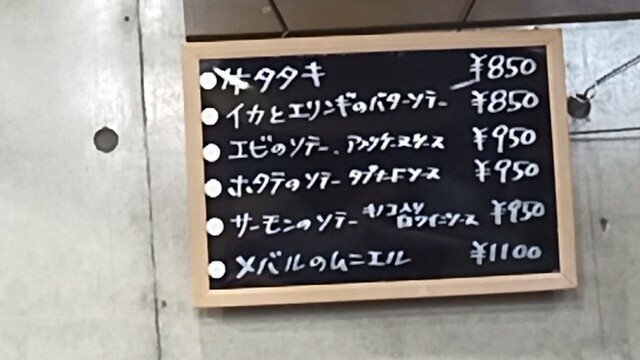 タタキ ¥850
イカとエリンギのバターソテー ¥850
エビのソテー、 ¥950
ホタテのソテー タプナードソース ¥950
サーモンのソテー キノコ入り白ワインソース ¥950
メバルのムニエル ¥1100